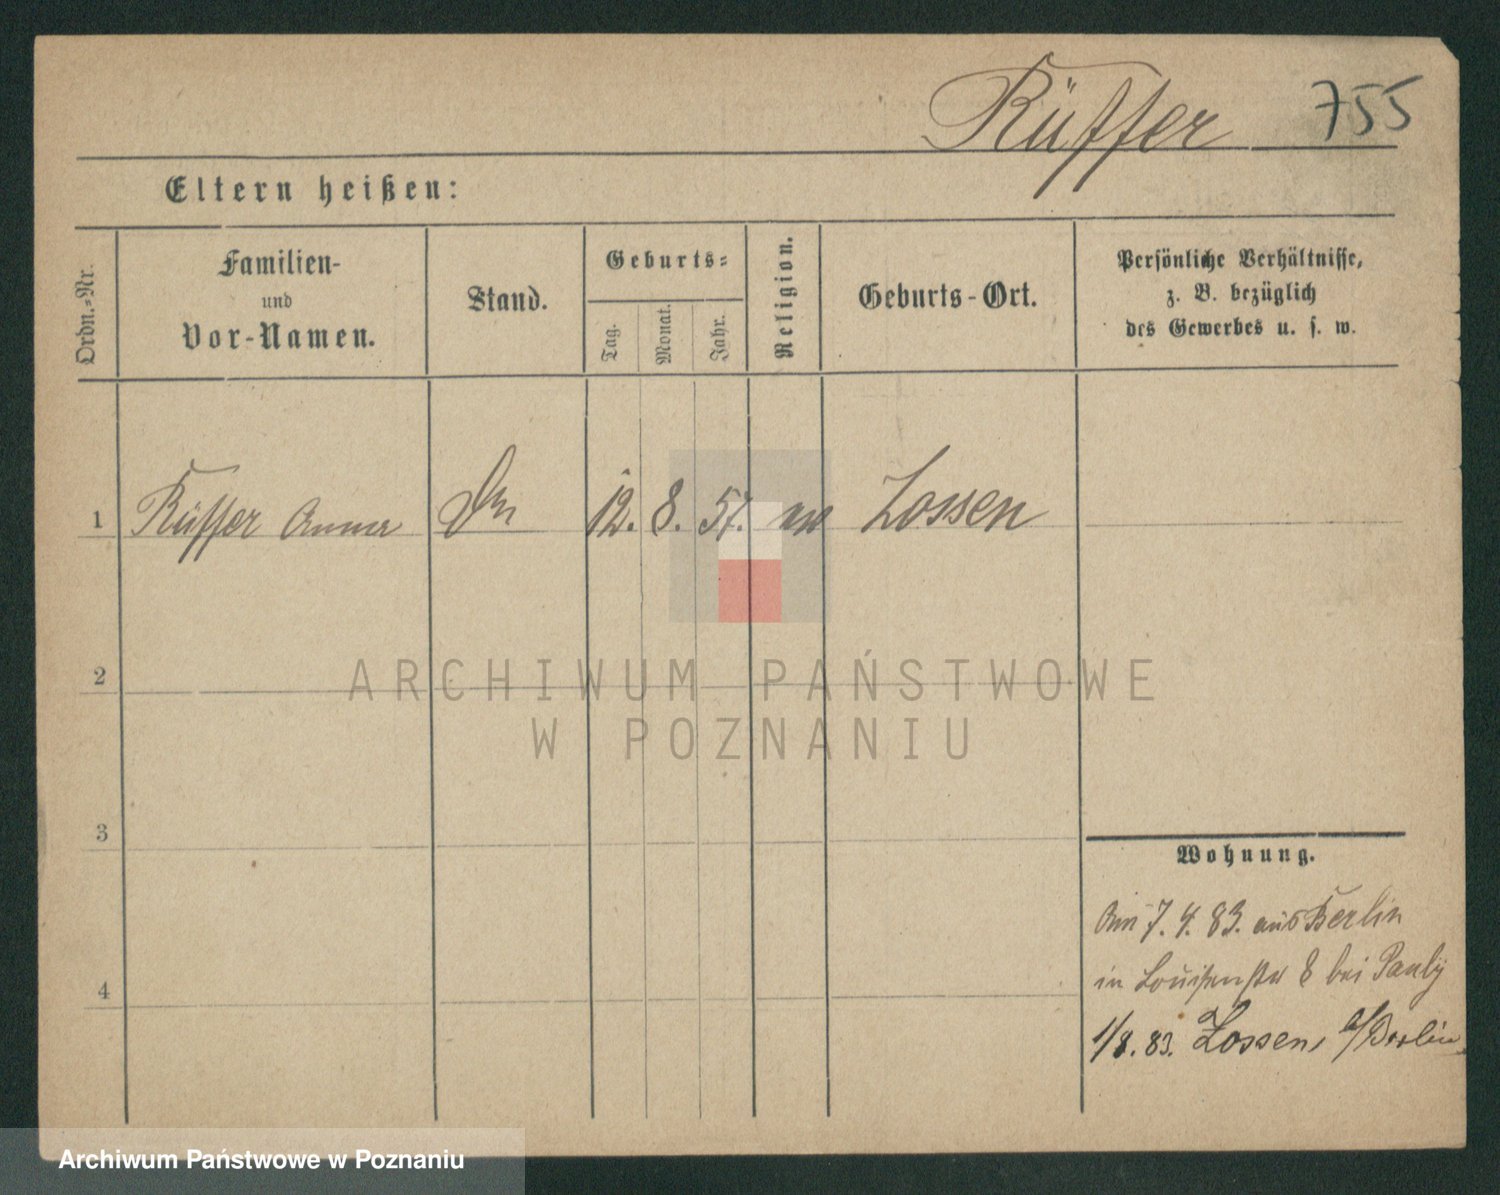 Rüffer 755
Eltern heißen:
Ordn.=Nr.
Familien-
und
Vor-Namen.
Stand.
Geburts=
Tag.
Monat.
Jahr.
Religion.
Geburts-Ort.
Persönliche Verhältnisse,
z. B. bezüglich
des Gewerbes u. s. w.
1 Rüffer Anna 12. 8. 57. Lossen
2
3
4
ARCHIWUM PAŃSTWOWE
W POZNANIU
Wohnung.
Am 7. 4. 83. aus Berlin
in Louisenstr 8 bei Pauly
1/8. 83. Lossen, b/Berlin
Archiwum Państwowe w Poznaniu